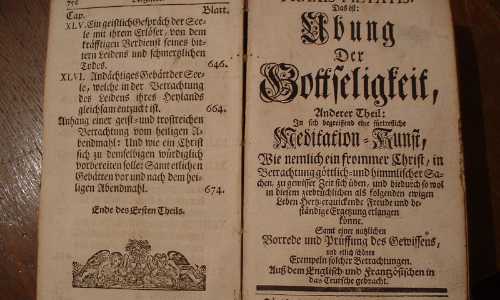 752
Cap. Blatt.
XLV. Ein geistlich Gespräch der See-
le mit ihrem Erlöser, von dem
kräfftigen Verdienst seines bit-
tern Leidens und schmertzlichen
Todes. 646.
XLVI. Andächtiges Gebätt der See-
le, welche in der Betrachtung
des Leidens ihres Heylands
gleichsam entzuckt ist. 664.
Anhang einer geist- und trostreichen
Betrachtung vom heiligen A-
bendmahl: Und wie ein Christ
sich zu demselbigen würdiglich
vorbereiten solle: Samt etlichen
Gebätten vor und nach dem hei-
ligen Abendmahl. 674.
Ende des Ersten Theils.
PIETATIS.
Das ist:
Ubung
Der
Gottseligkeit,
Anderer Theil:
In sich begreiffend eine fürtreffliche
Meditation-Kunst,
Wie nemlich ein frommer Christ, in
Betrachtung göttlich- und himmlischer Sa-
chen, zu gewisser Zeit sich üben, und hiedurch so wol
in diesem zerbrüchlichen als folgenden ewigen
Leben Hertz-erquickende Freude und be-
ständige Ergetzung erlangen
könne.
Samt einer nutzlichen
Vorrede und Prüffung des Gewissens,
und etlich schönen
Exempeln solcher Betrachtungen.
Auß dem Englisch und Frantzösischen in
das Teutsche gebracht.